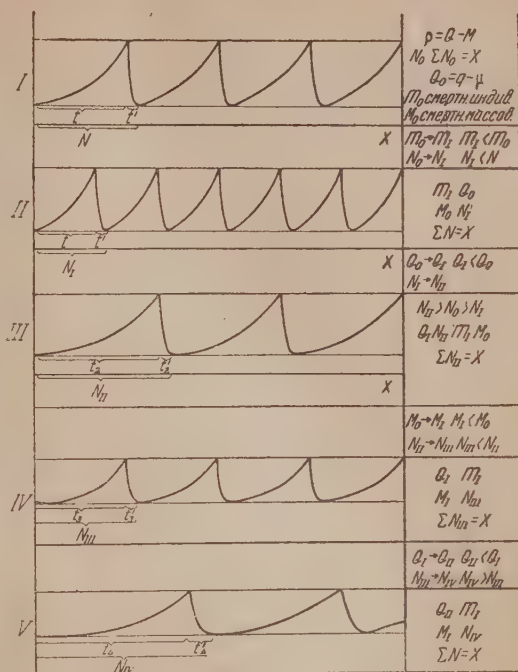 I
t t'
N
X
p = Q - M
N₀ ΣN₀ = X
Q₀ = q - μ
m₀ смертн. индив.
M₀ смертн. массов.
m₀ → m_I m_I < m₀
N₀ → N_I N_I < N
II
t t'
N_I
X
m_I Q₀
M₀ N'_I
ΣN = X
Q₀ → Q_I Q_I < Q₀
N_I → N_II
III
t₂ t'₂
N_II
X
N_II > N₀ > N_I
Q_I N_II m_I M₀
ΣN_II = X
M₀ → M_I M_I < M₀
N_II → N_III N_III < N_II
IV
t₃
N_III
Q_I m_I
M_I N_III
ΣN_III = X
Q_I → Q_II Q_II < Q_I
N_III → N_IV N_IV > N_III
V
Q_II m_I
M_I N_IV
ΣN = X